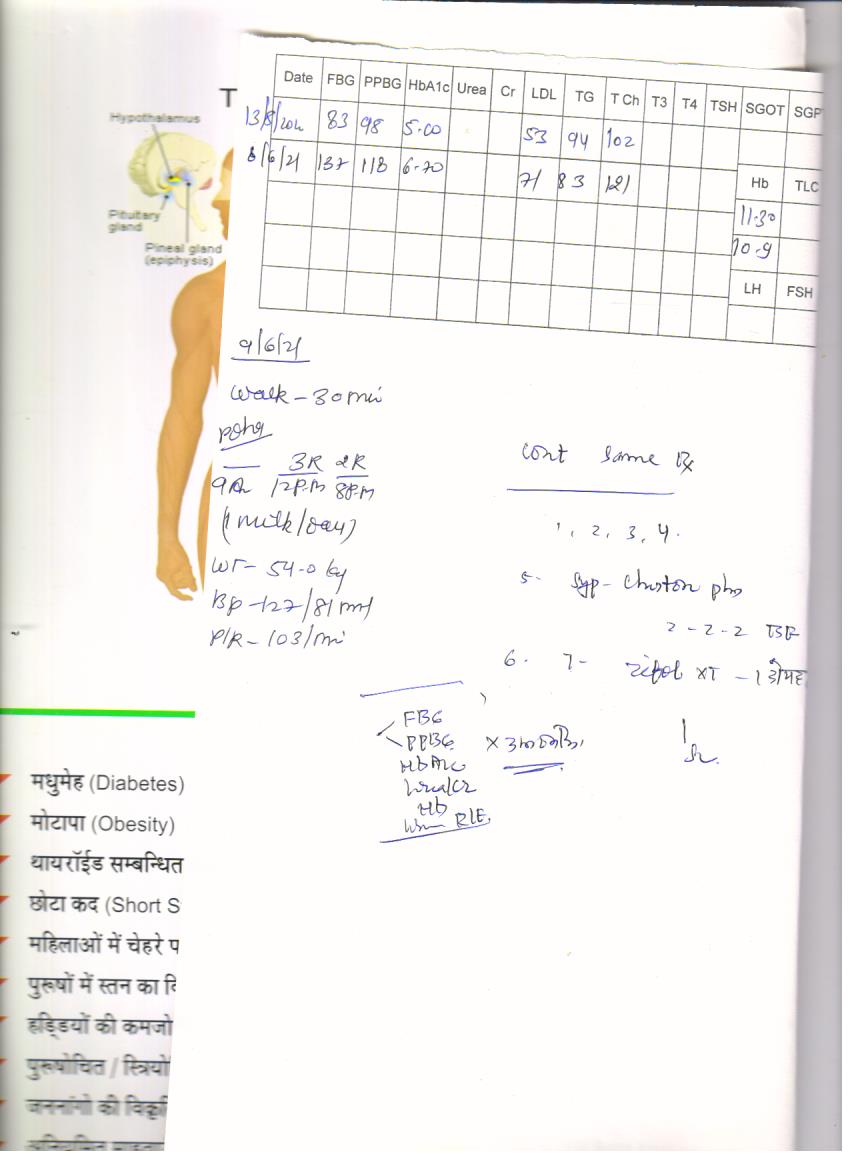 T
Hypothalamus
Pituitary
gland
Pineal gland
(epiphysis)
Date FBG PPBG HbA1c Urea Cr LDL TG T Ch T3 T4 TSH SGOT SGP
83 98 5.00 53 94 102
8/6/21 137 118 6.70 71 83 121
Hb TLC
11.30
10.9
LH FSH
9/6/21
Walk - 30 min
Poha
3R 2R
12P.M 8P.M
(1 milk/day)
WT - 54.0 kg
Bp - 127/81 mm
P/R - 103/mi
cont same Rx
1, 2, 3, 4.
5. Syp-
2-2-2 TSF
6. T- XT - 1
FBG
PPBG x 3
HbA1c
Urea/Cr
Hb
Urine R/E
मधुमेह (Diabetes)
मोटापा (Obesity)
थायरॉईड सम्बन्धित
छोटा कद (Short S
महिलाओं में चेहरे प
पुरूषों में स्तन का वि
हड्डियों की कमजो
पुरूषोचित / स्त्रियो
जननांगो की विकृ